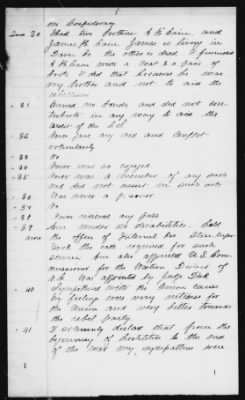 the Confederacy
Ans 30 Had two brothers A H Cain and
James M Cain. James is living in
Davie Co the other is dead I furnished
A H Cain with a coat & a pair of
boots I did that because he was
my brother and not to aid the
rebellion
" 31 Owned no bonds and did not con-
tribute in any way to aid the
credit of the C.S.
" 32 Never gave any aid and comfort
voluntarily
" 33 No
" 34 Never was so engaged
" 35 Never was a member of any such
and did not assist in such acts
" 36 Was never a prisoner
" 37 No
" 38 Never received any pass
" 39 Am under no disabilities. Hold
the office of Internal Rev Store keeper
took the oath required for such
service, am also appointed U.S. Com-
missioner for the Western Division of
N.C. Was appointed by Judge Dick
" 40 Sympathised with the Union cause
My feeling were very intense for
the Union and very bitter towards
the rebel party.
" 41 I solemnly declare that from the
beginning of hostilities to the end
of the war my sympathies were